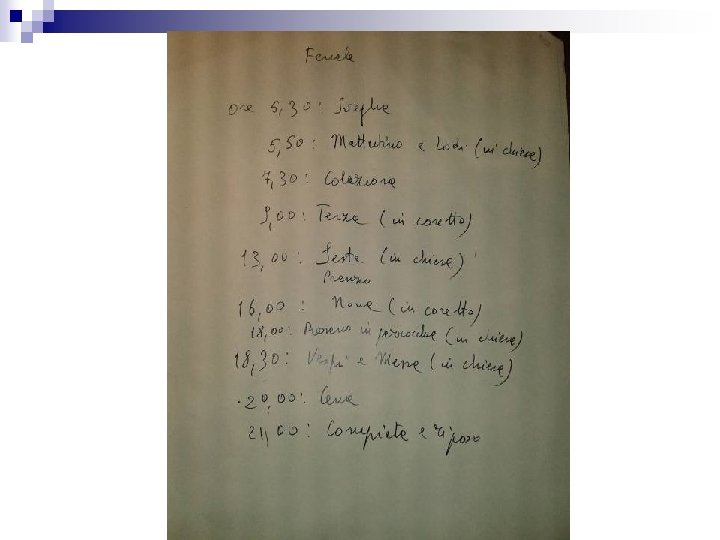 Feriale
ore 5,30: Sveglia
5,50: Mattutino e Lodi (in chiesa)
7,30: Colazione
9,00: Terza (in coretto)
13,00: Sesta (in chiesa)
Pranzo
16,00: Nona (in coretto)
18,00: in (in chiesa)
18,30: Vespri e Messa (in chiesa)
20,00: Cena
21,00: Compieta e riposo